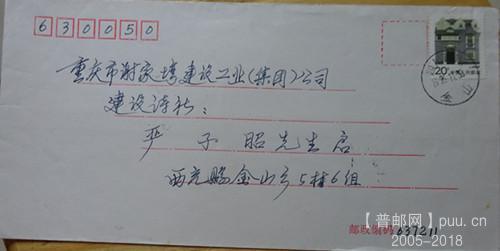 630050
20
重庆市谢家湾建设工业(集团)公司
建设诗社：
严子昭先生启
金山乡5村6组
邮政编码 637211
【普邮网】puu.cn
2005-2018